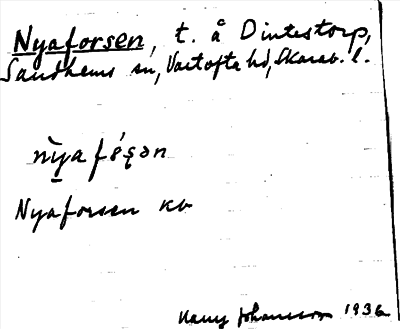 Nyaforsen, t. å Dintestorp,
Sandhems sn, Vartofta hd, Skarab. l.
nỳa fɵ́ʂən
Nyaforsen kb
Harry Johansson 1936